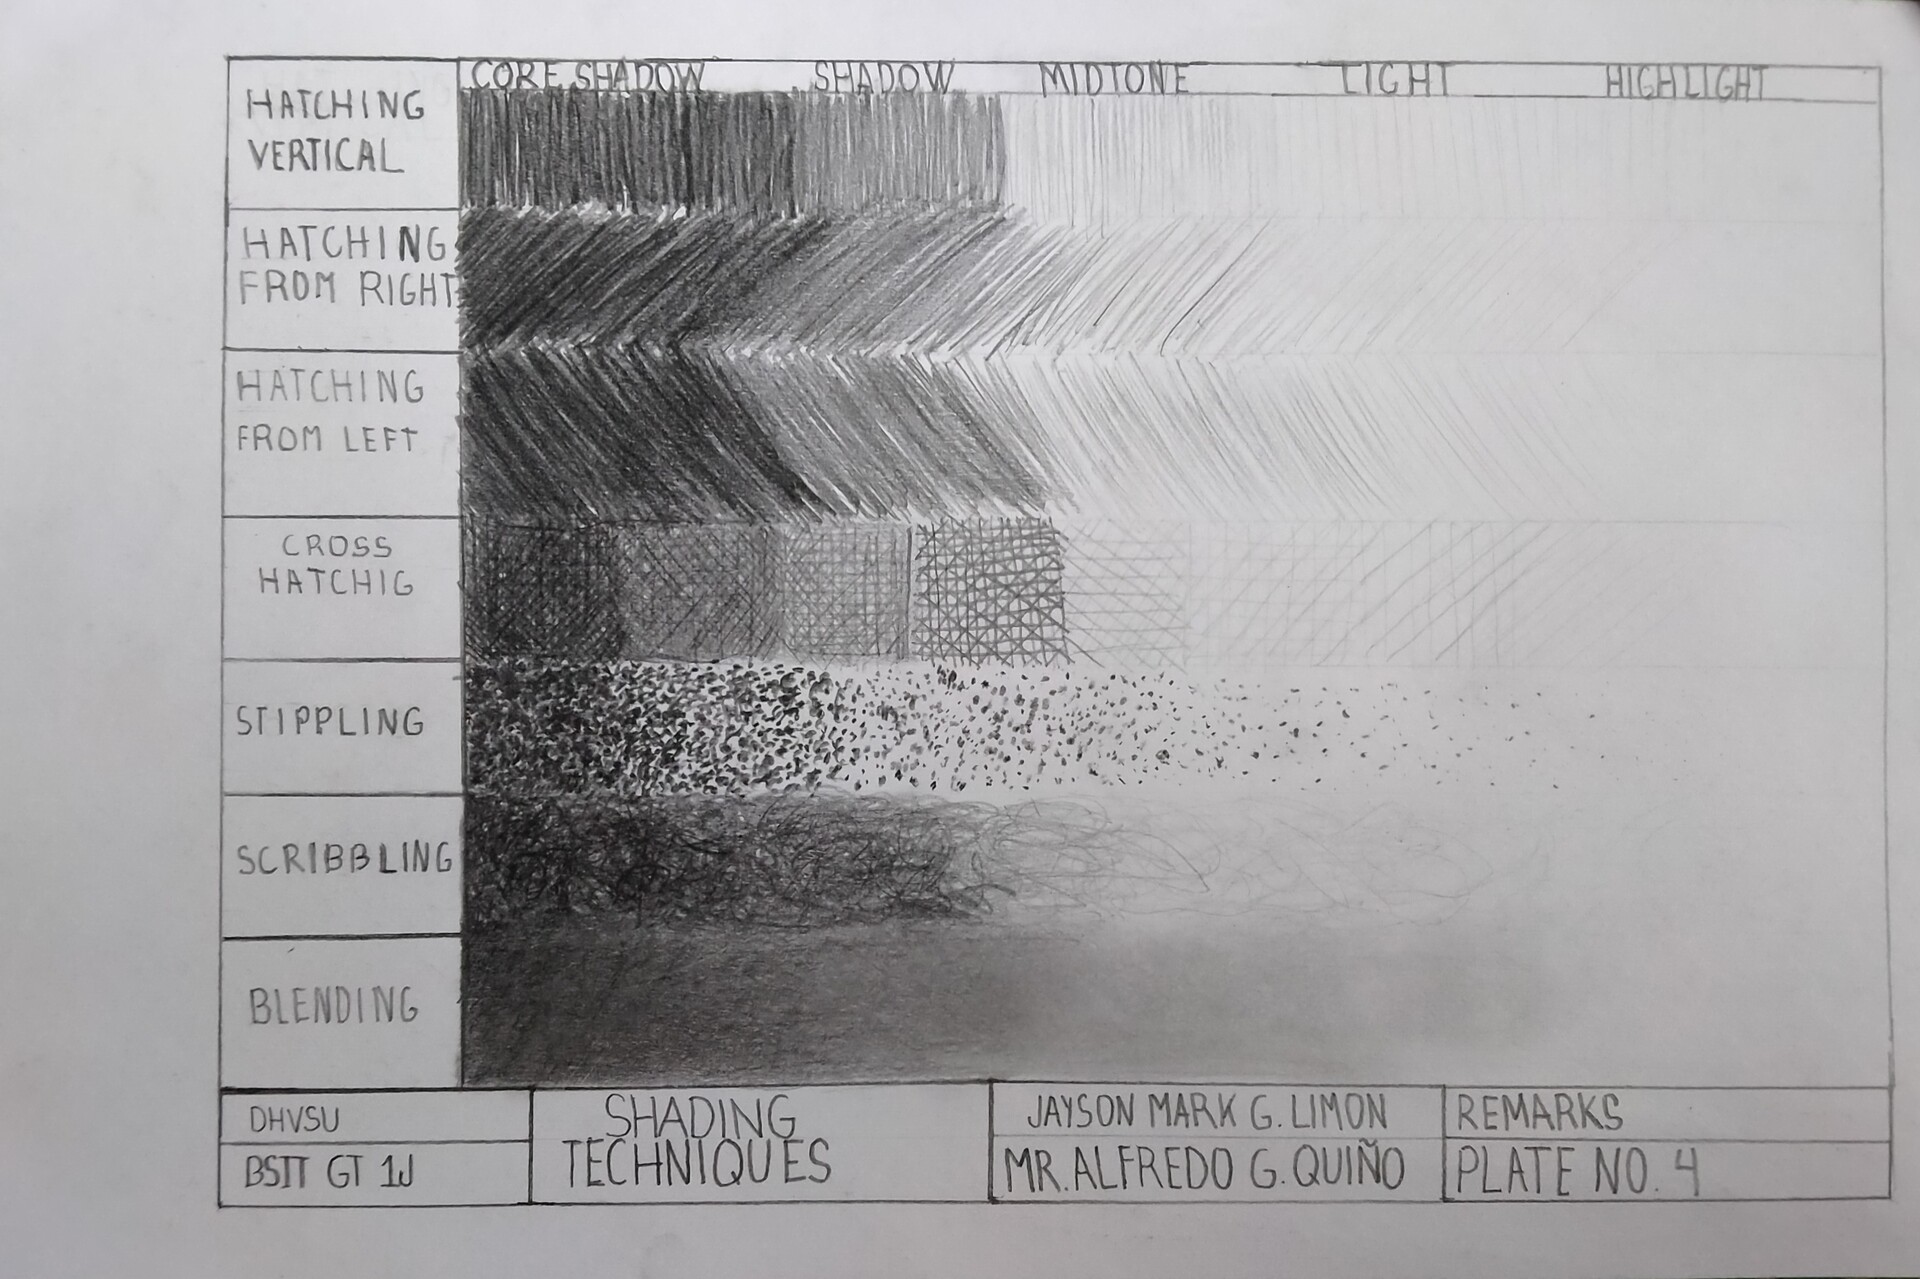 CORE SHADOW SHADOW MIDTONE LIGHT HIGHLIGHT
HATCHING
VERTICAL
HATCHING
FROM RIGHT
HATCHING
FROM LEFT
CROSS
HATCHIG
STIPPLING
SCRIBBLING
BLENDING
DHVSU
BSIT GT 1J
SHADING
TECHNIQUES
JAYSON MARK G. LIMON
MR. ALFREDO G. QUIÑO
REMARKS
PLATE NO. 4